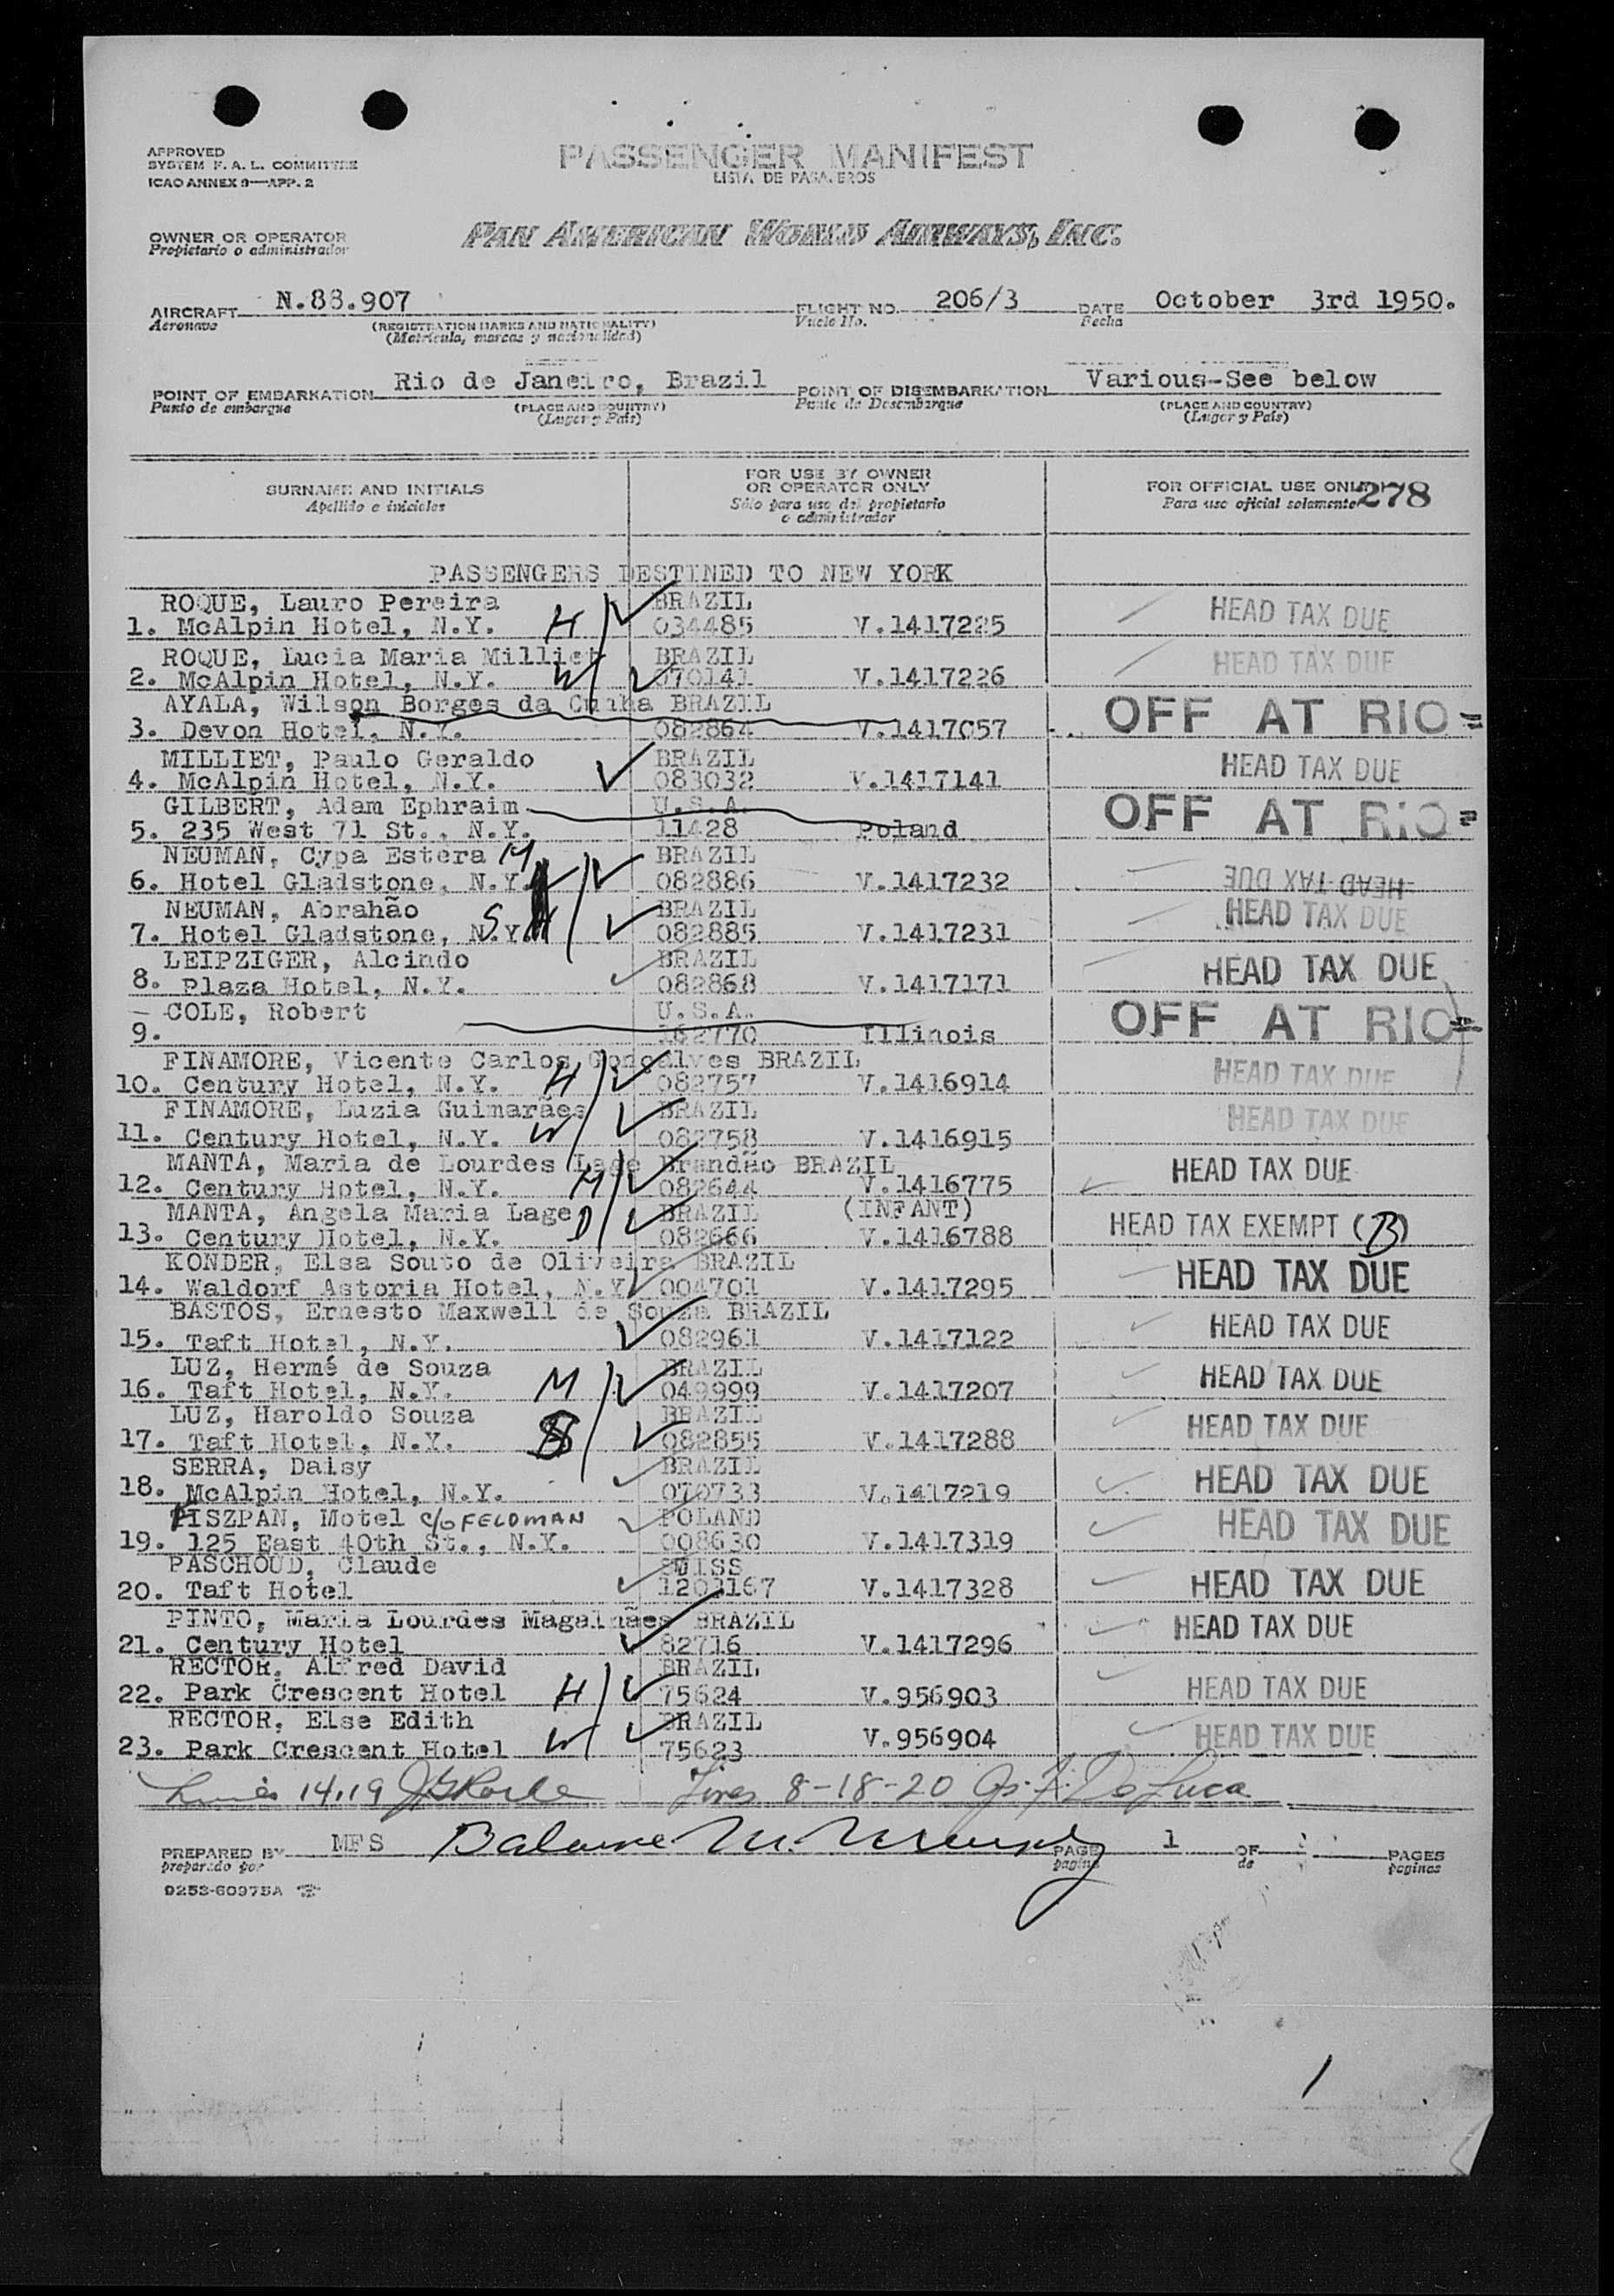 APPROVED
SYSTEM F. A. L. COMMITTEE
ICAO ANNEX 9—APP. 2
PASSENGER MANIFEST
LISTA DE PASAJEROS
OWNER OR OPERATOR
Propietario o administrador
PAN AMERICAN WORLD AIRWAYS, INC.
AIRCRAFT N.88.907 FLIGHT NO. 206/3 DATE October 3rd 1950.
Aeronave (REGISTRATION MARKS AND NATIONALITY) Vuelo No. Fecha
(Matrícula, marcas y nacionalidad)
POINT OF EMBARKATION Rio de Janeiro, Brazil POINT OF DISEMBARKATION Various-See below
Punto de embarque (PLACE AND COUNTRY) Punto de Desembarque (PLACE AND COUNTRY)
(Lugar y País) (Lugar y País)
SURNAME AND INITIALS
Apellido e iniciales
FOR USE BY OWNER
OR OPERATOR ONLY
Sólo para uso del propietario
o administrador
FOR OFFICIAL USE ONLY 278
Para uso oficial solamente
PASSENGERS DESTINED TO NEW YORK
ROQUE, Lauro Pereira BRAZIL HEAD TAX DUE
1. McAlpin Hotel, N.Y. H 034485 V.1417225
ROQUE, Lucia Maria Milliet BRAZIL HEAD TAX DUE
2. McAlpin Hotel, N.Y. W 070141 V.1417226
AYALA, Wilson Borges da Cunha BRAZIL OFF AT RIO=
3. Devon Hotel, N.Y. 082864 V.1417057
MILLIET, Paulo Geraldo BRAZIL HEAD TAX DUE
4. McAlpin Hotel, N.Y. 083032 V.1417141
GILBERT, Adam Ephraim U.S.A. OFF AT RIO=
5. 235 West 71 St., N.Y. 11428 Poland
NEUMAN, Cypa Estera M BRAZIL
6. Hotel Gladstone, N.Y. 082886 V.1417232 HEAD TAX DUE
NEUMAN, Abrahão S BRAZIL HEAD TAX DUE
7. Hotel Gladstone, N.Y. 082885 V.1417231
LEIPZIGER, Alcindo BRAZIL HEAD TAX DUE
8. Plaza Hotel, N.Y. 082868 V.1417171
COLE, Robert U.S.A. OFF AT RIO=
9. 162770 Illinois
FINAMORE, Vicente Carlos Gonçalves BRAZIL HEAD TAX DUE
10. Century Hotel, N.Y. H 082757 V.1416914
FINAMORE, Luzia Guimarães BRAZIL HEAD TAX DUE
11. Century Hotel, N.Y. W 082758 V.1416915
MANTA, Maria de Lourdes Lage Brandão BRAZIL HEAD TAX DUE
12. Century Hotel, N.Y. M 082644 V.1416775
MANTA, Angela Maria Lage D BRAZIL (INFANT) HEAD TAX EXEMPT (B)
13. Century Hotel, N.Y. 082666 V.1416788
KONDER, Elsa Souto de Oliveira BRAZIL HEAD TAX DUE
14. Waldorf Astoria Hotel, N.Y. 004701 V.1417295
BASTOS, Ernesto Maxwell de Souza BRAZIL HEAD TAX DUE
15. Taft Hotel, N.Y. 082961 V.1417122
LUZ, Hermé de Souza BRAZIL HEAD TAX DUE
16. Taft Hotel, N.Y. M 049999 V.1417207
LUZ, Haroldo Souza BRAZIL HEAD TAX DUE
17. Taft Hotel, N.Y. S 082855 V.1417288
SERRA, Daisy BRAZIL HEAD TAX DUE
18. McAlpin Hotel, N.Y. 070733 V.1417219
FISZPAN, Motel c/o FELDMAN POLAND HEAD TAX DUE
19. 125 East 40th St., N.Y. 008630 V.1417319
PASCHOUD, Claude SWISS HEAD TAX DUE
20. Taft Hotel 1203167 V.1417328
PINTO, Maria Lourdes Magalhães BRAZIL HEAD TAX DUE
21. Century Hotel 82716 V.1417296
RECTOR, Alfred David BRAZIL HEAD TAX DUE
22. Park Crescent Hotel H 75624 V.956903
RECTOR, Else Edith BRAZIL HEAD TAX DUE
23. Park Crescent Hotel W 75623 V.956904
14.19 Lines 8-18-20 De Luca
PREPARED BY MFS PAGE 1 OF PAGES
preparado por pagina de paginas
9253-60975A
1